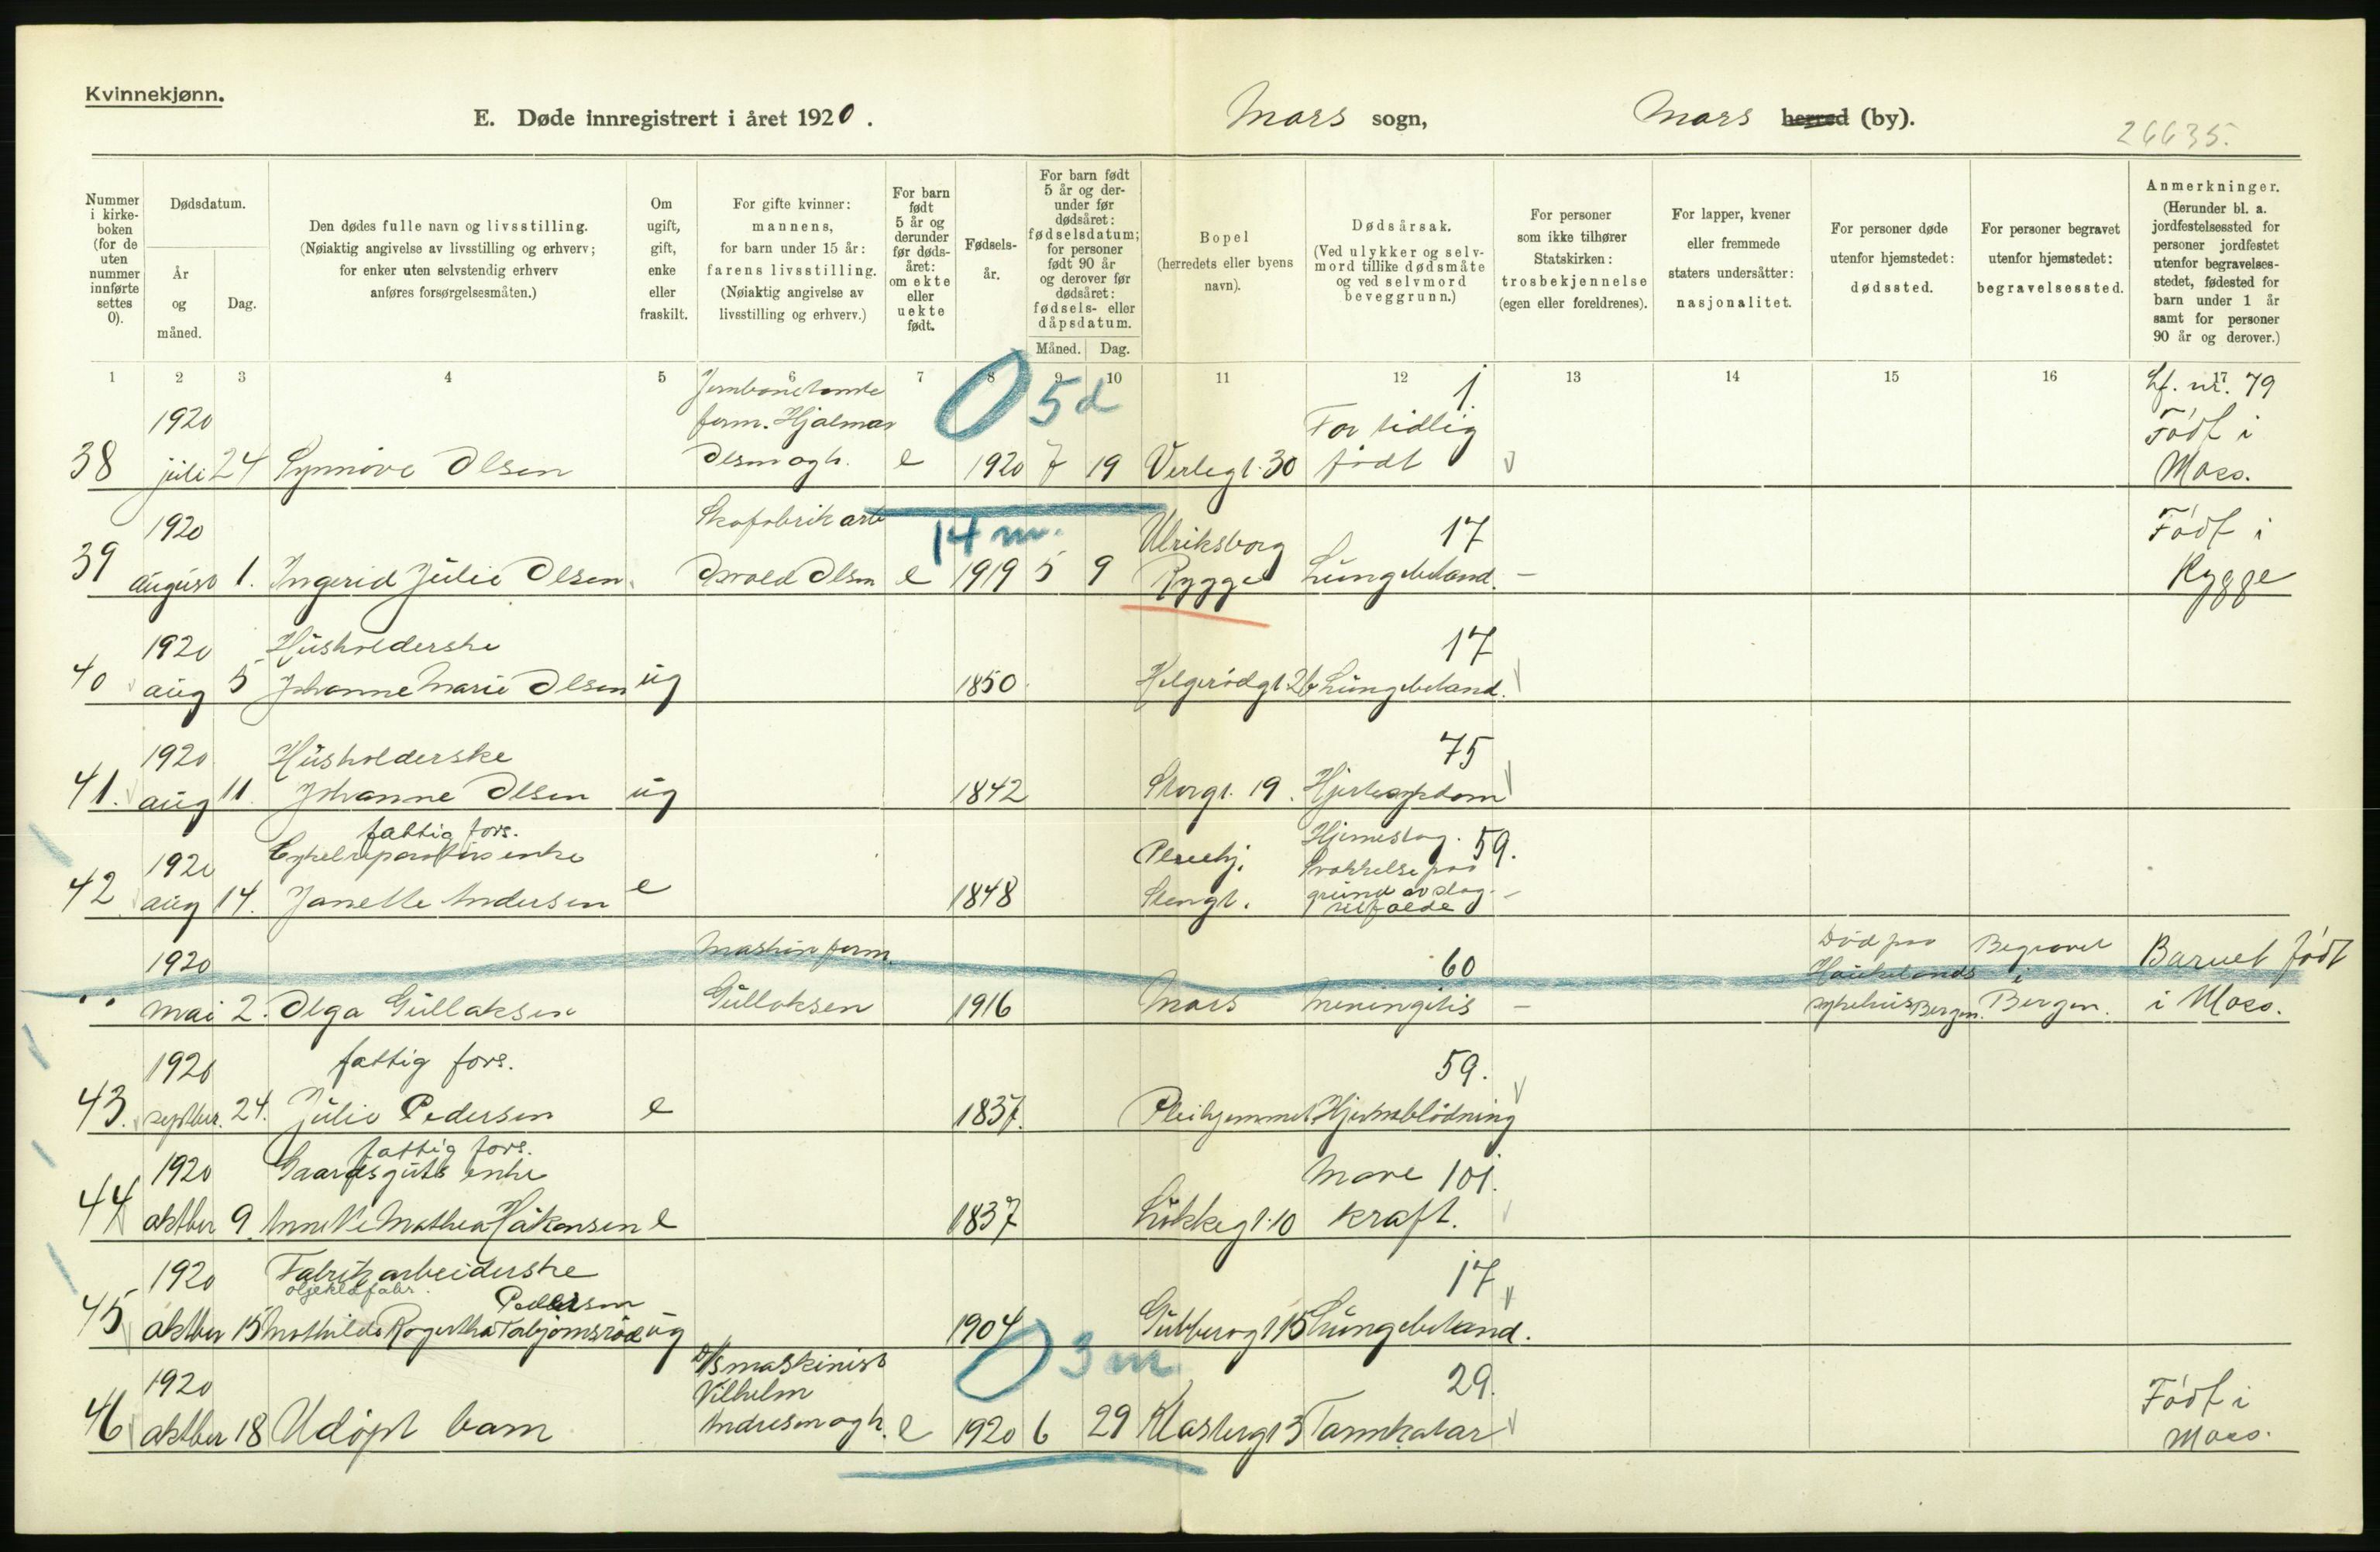 Kvinnekjønn.
E. Døde innregistrert i året 1920.
Moss sogn,
Moss herred (by).
26635.
Nummer i kirkeboken (for de uten nummer innførte settes 0).
Dødsdatum.
År og måned.
Dag.
Den dødes fulle navn og livsstilling.
(Nøiaktig angivelse av livsstilling og erhverv;
for enker uten selvstendig erhverv
anføres forsørgelsesmåten.)
Om ugift, gift, enke eller fraskilt.
For gifte kvinner:
mannens,
for barn under 15 år:
farens livsstilling.
(Nøiaktig angivelse av
livsstilling og erhverv.)
For barn født 5 år og derunder før dødsåret: om ekte eller uekte født.
Fødselsår.
For barn født 5 år og derunder før dødsåret: fødselsdatum; for personer født 90 år og derover før dødsåret: fødsels- eller dåpsdatum.
Måned.
Dag.
Bopel
(herredets eller byens
navn).
Dødsårsak.
(Ved ulykker og selvmord tillike dødsmåte og ved selvmord beveggrunn.)
For personer
som ikke tilhører
Statskirken:
trosbekjennelse
(egen eller foreldrenes).
For lapper, kvener
eller fremmede
staters undersåtter:
nasjonalitet.
For personer døde
utenfor hjemstedet:
dødssted.
For personer begravet
utenfor hjemstedet:
begravelsessted.
Anmerkninger.
(Herunder bl. a.
jordfestelsessted for
personer jordfestet
utenfor begravelses-
stedet, fødested for
barn under 1 år
samt for personer
90 år og derover.)
1 2 3 4 5 6 7 8 9 10 11 12 13 14 15 16 17
0 5 d
1920 form. Hjalmar For tidlig 1. Lf. nr. 79 Født i
38 juli 24 Synnöve Olsen Olsen og h. e 1920 7 19 Verlegt. 30 født Moss.
1920 Skofabrik arb 14 m. Ulriksborg 17 Født i
39 august 1. Ingerid Julie Olsen. Olsen e 1919 5 9 Rygge Lungebetænd. - Rygge
1920 Husholderske 17
40 aug 5 Johanne Marie Olsen ug 1850 Helgerödgt 26 Lungebetænd.
1920 Husholderske 75
41. aug 11. Johanne Olsen ug 1842 Storgt. 19. Hjertesygdom
fattig fors.
1920 enke Pleiehj. Hjerneslag. 59.
Svækkelse paa
42 aug 14. Janette Andersen e 1848 Stengt. grund av slag-
tilfælde -
1920 Maskin form. 60 Død paa Begravet Barnet født
Haukelands i
" mai 2. Olga Gullaksen Gullaksen 1916 Moss Meningitis - sykehus Bergen. Bergen. i Moss.
1920 fattig fors. 59.
43. septber. 24. Julie Pedersen e 1837. Pleihjemmet Hjerneblödning
fattig fors.
1920 Gaardsguts enke Mare 101.
44 oktber 9. Mathea Håkensen e 1837 Løkkegt. 10 kraft.
1920 Fabrik arbeiderske 17
oljeklæfabr. Pedersen
45 oktber 15 Mathilde ug 1904 Gubberogt 15 Lungebetænd.
0 3 m
1920 D/S maskinist Vilhelm 29. Født i
46 oktber 18 Udøpt barn Andresen og h. e 1920 6 29 Klostergt 3 Tarmkatar Moss.